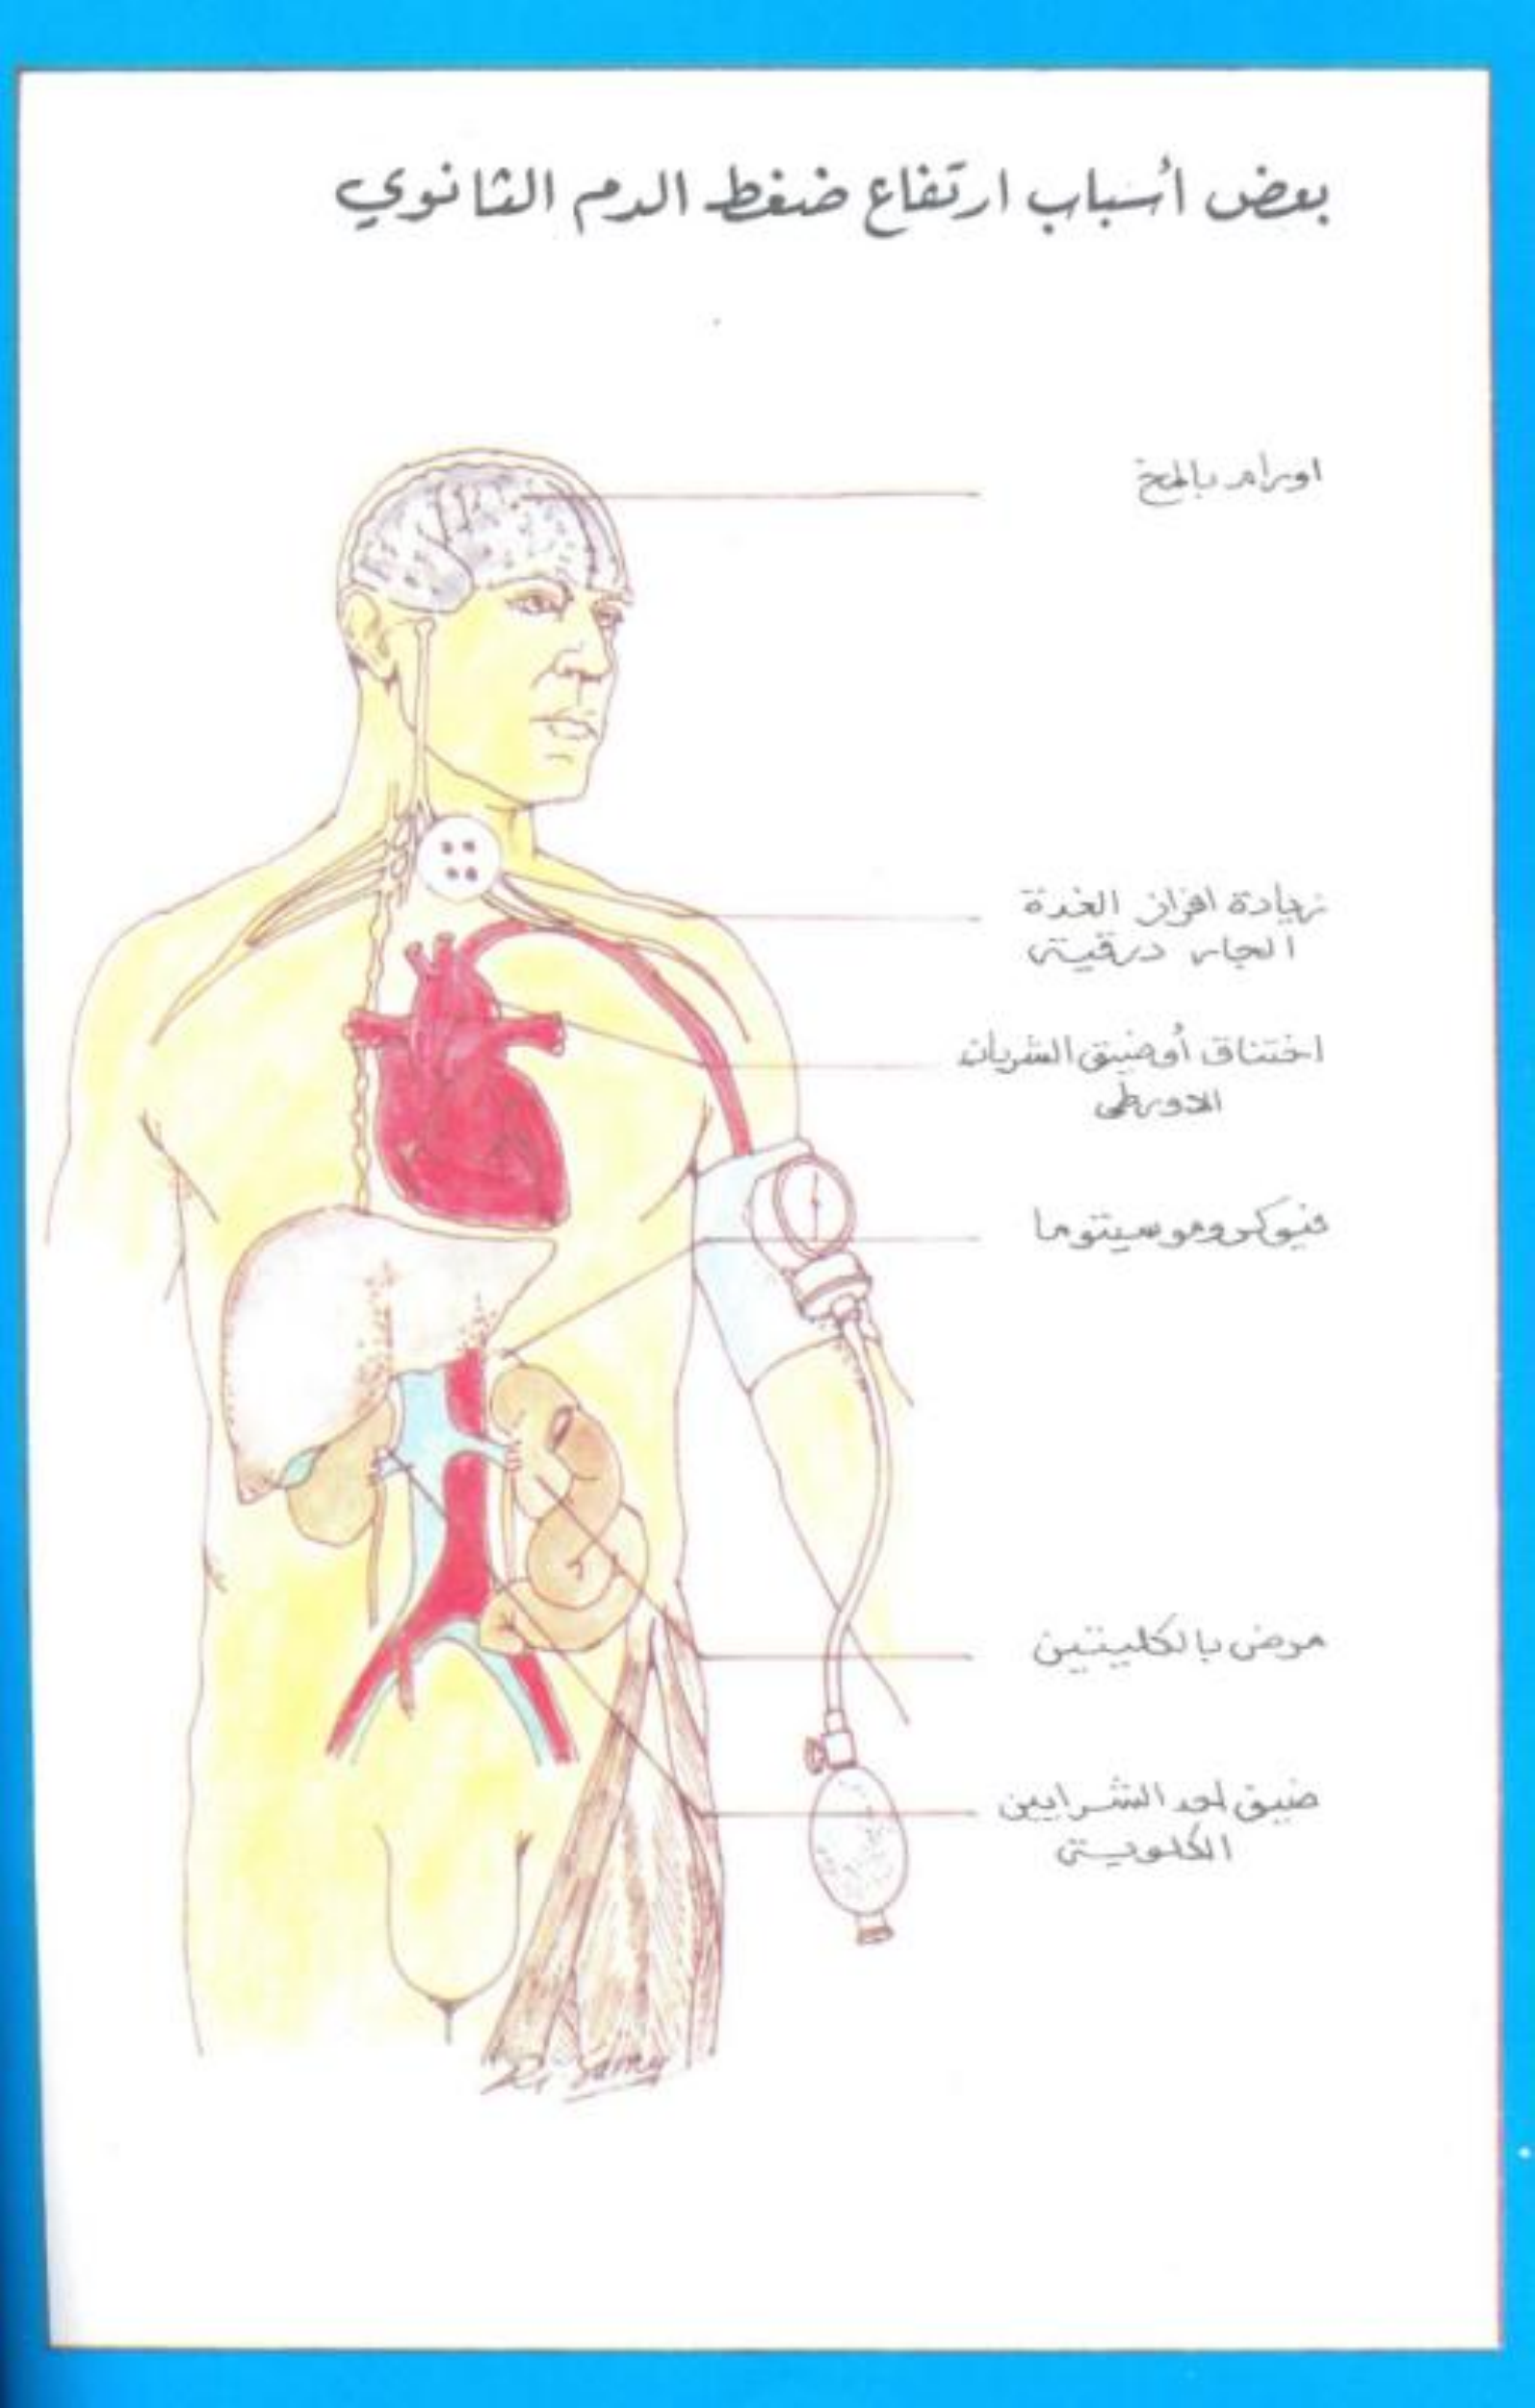 بعض أسباب ارتفاع ضغط الدم الثانوي
اورام بالمخ
زيادة افراز الغدة
الجار درقية
اختناق أو ضيق الشريان
الاورطى
فيوكروموسيتوما
مرض بالكليتين
ضيق احد الشرايين
الكلوية